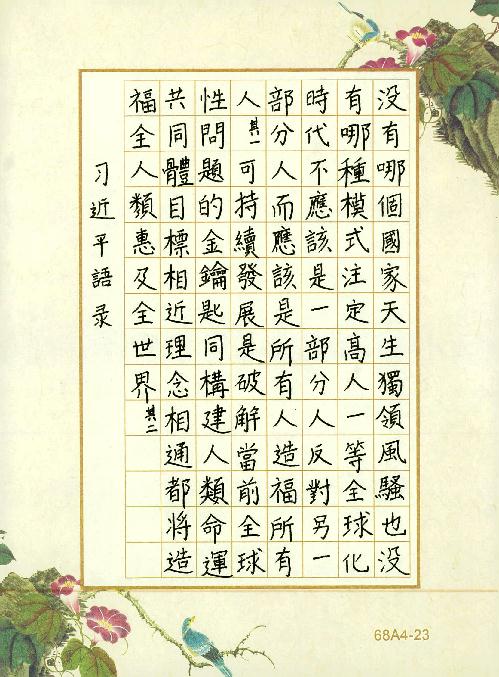 没有哪個國家天生獨領風騷也没
有哪種模式注定高人一等全球化
時代不應該是一部分人反對另一
部分人而應該是所有人造福所有
人其一可持續發展是破解當前全球
性問題的金鑰匙同構建人類命運
共同體目標相近理念相通都將造
福全人類惠及全世界其二
习近平語录
68A4-23